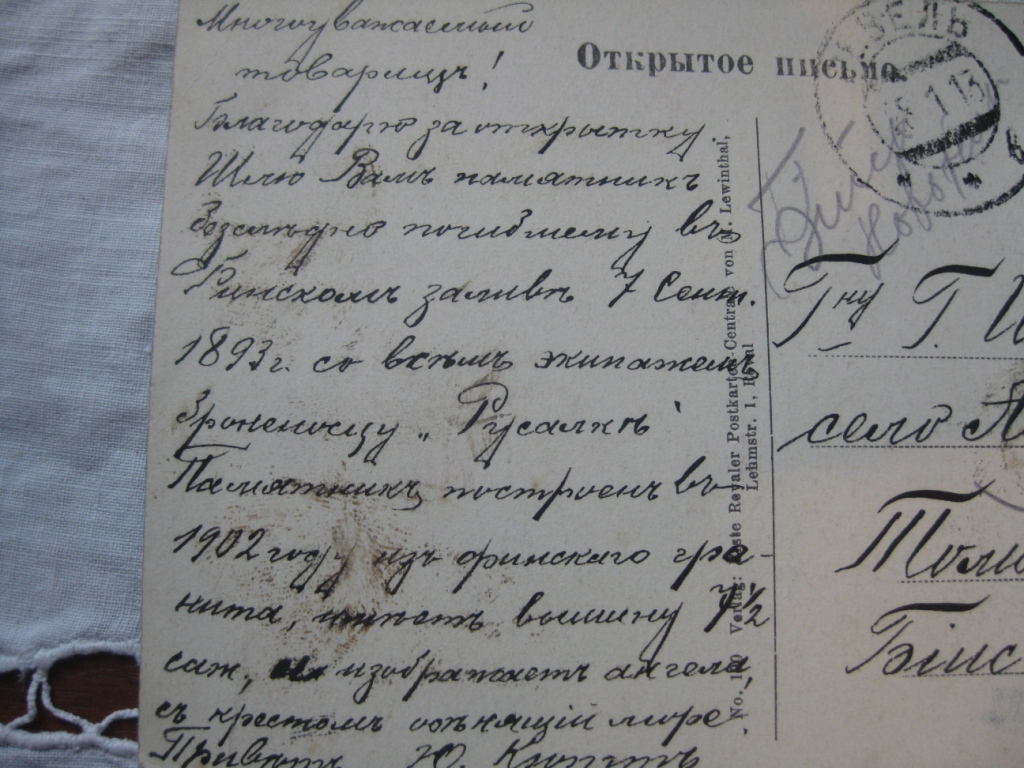 Многоуважаемый
товарищъ!
Благодарю за открытку
Шлю Вамъ памятникъ
безслѣдно погибшему въ
Финскомъ заливѣ 7 Сент.
1893г. со всѣмъ экипажемъ
броненосцу „Русалкѣ"
Памятникъ построенъ въ
1902 году изъ финскаго гра-
нита, имѣетъ вышину 7½
саж, изображаетъ ангела,
съ крестомъ осѣняющій море
Привѣтъ Ю.
Открытое письмо.
No. Verlag: Erste Revaler Postkarten-Centrale von M. Lewinthal,
Lehmstr. 1, Reval
1 13
Гну Г.
село
Бійс